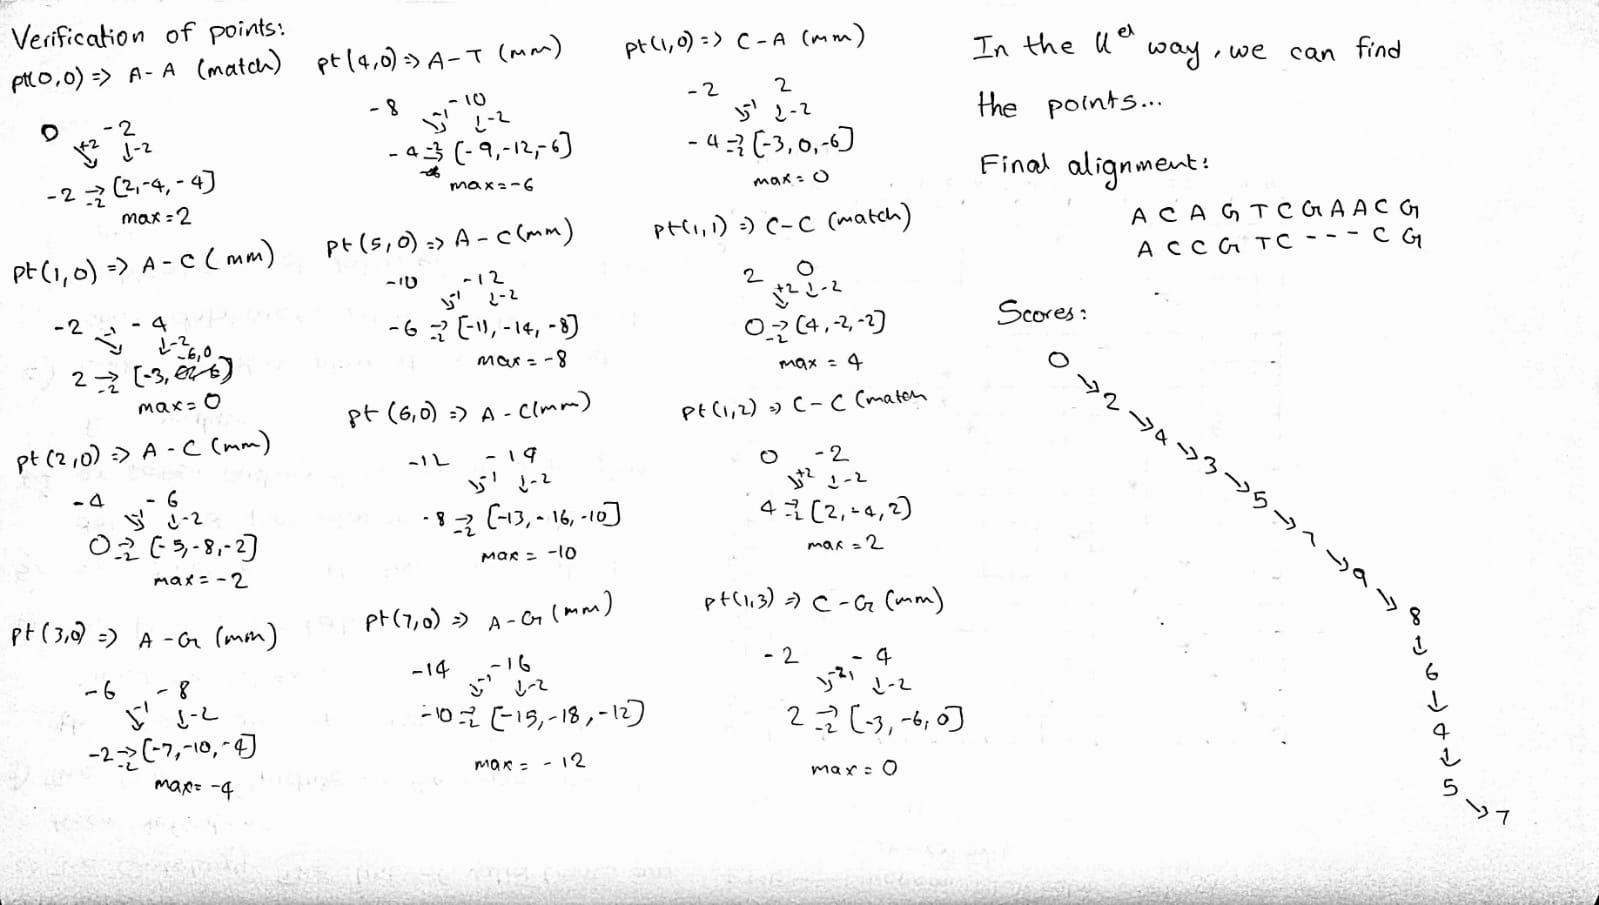 Verification of points:
pt(0,0) => A-A (match)
0 -2
+2 ↓-2
-2 →-2 [2,-4,-4]
max=2
pt(1,0) => A-C (mm)
-2 -1 -4
↓-2
-6,0
2 →-2 [-3,
max=0
pt(2,0) => A-C (mm)
-4 -6
-1 ↓-2
0 →-2 [-5,-8,-2]
max=-2
pt(3,0) => A-G (mm)
-6 -8
-1 ↓-2
-2 →-2 [-7,-10,-4]
max=-4
pt(4,0) => A-T (mm)
-8 -10
-1 ↓-2
-4 →-2 [-9,-12,-6]
max=-6
pt(5,0) => A-C(mm)
-10 -12
-1 ↓-2
-6 →-2 [-11,-14,-8]
max=-8
pt(6,0) => A-C(mm)
-12 -14
-1 ↓-2
-8 →-2 [-13,-16,-10]
max=-10
pt(7,0) => A-G (mm)
-14 -16
-1 ↓-2
-10 →-2 [-15,-18,-12]
max=-12
pt(1,0) => C-A (mm)
-2 2
-1 ↓-2
-4 →-2 [-3,0,-6]
max=0
pt(1,1) => C-C (match)
2 0
+2 ↓-2
0 →-2 [4,-2,-2]
max=4
pt(1,2) => C-C (match
0 -2
+2 ↓-2
4 →-2 [2,-4,2]
max=2
pt(1,3) => C-G (mm)
-2 -4
↓-2
2 →-2 [-3,-6,0]
max=0
In the way, we can find
the points...
Final alignment:
A C A G T C G A A C G
A C C G T C - - - C G
Scores:
0
↘ 2
↘ 4
↘ 3
↘ 5
↘ 7
↘ 9
↘ 8
↓
6
↓
4
↓
5
↘ 7